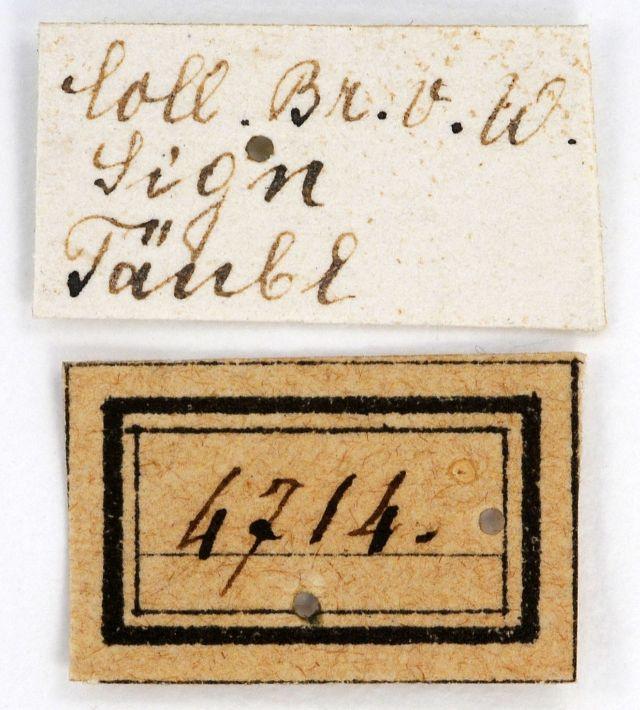 Coll. Br. v. W.
Sign
Täubl
4714.